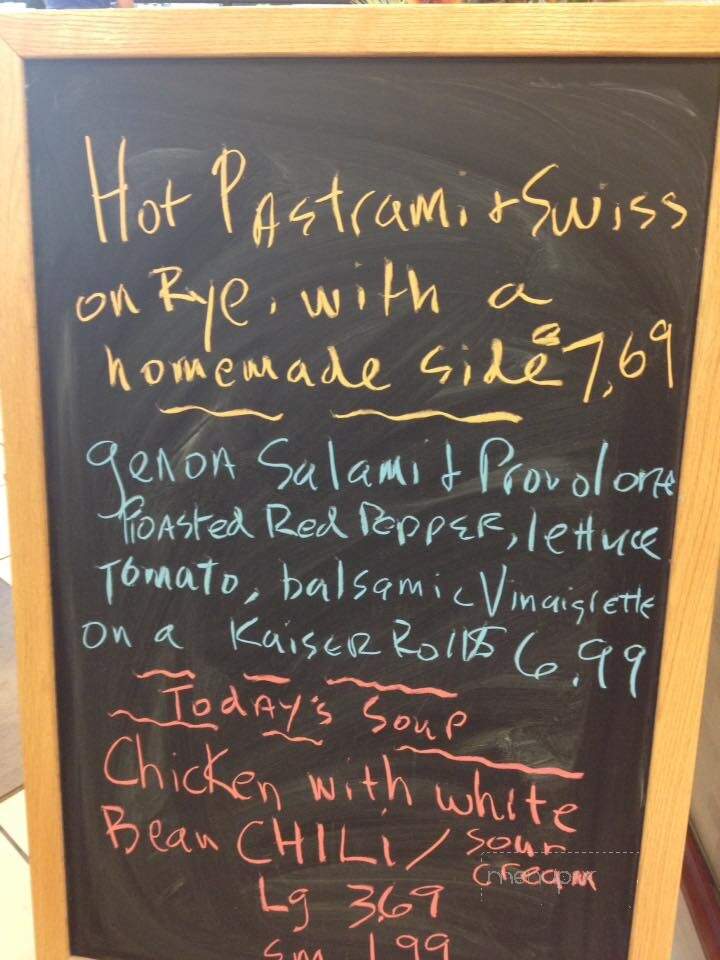 Hot Pastrami + Swiss
on Rye, with a
homemade side 7,69
genoa Salami + Provolone
Roasted Red Pepper, lettuce
Tomato, balsamic Vinaigrette
on a Kaiser Roll $ 6.99
Today's Soup
Chicken with white
Bean CHILi / sour
cream
Lg 3.69
Sm 1.99